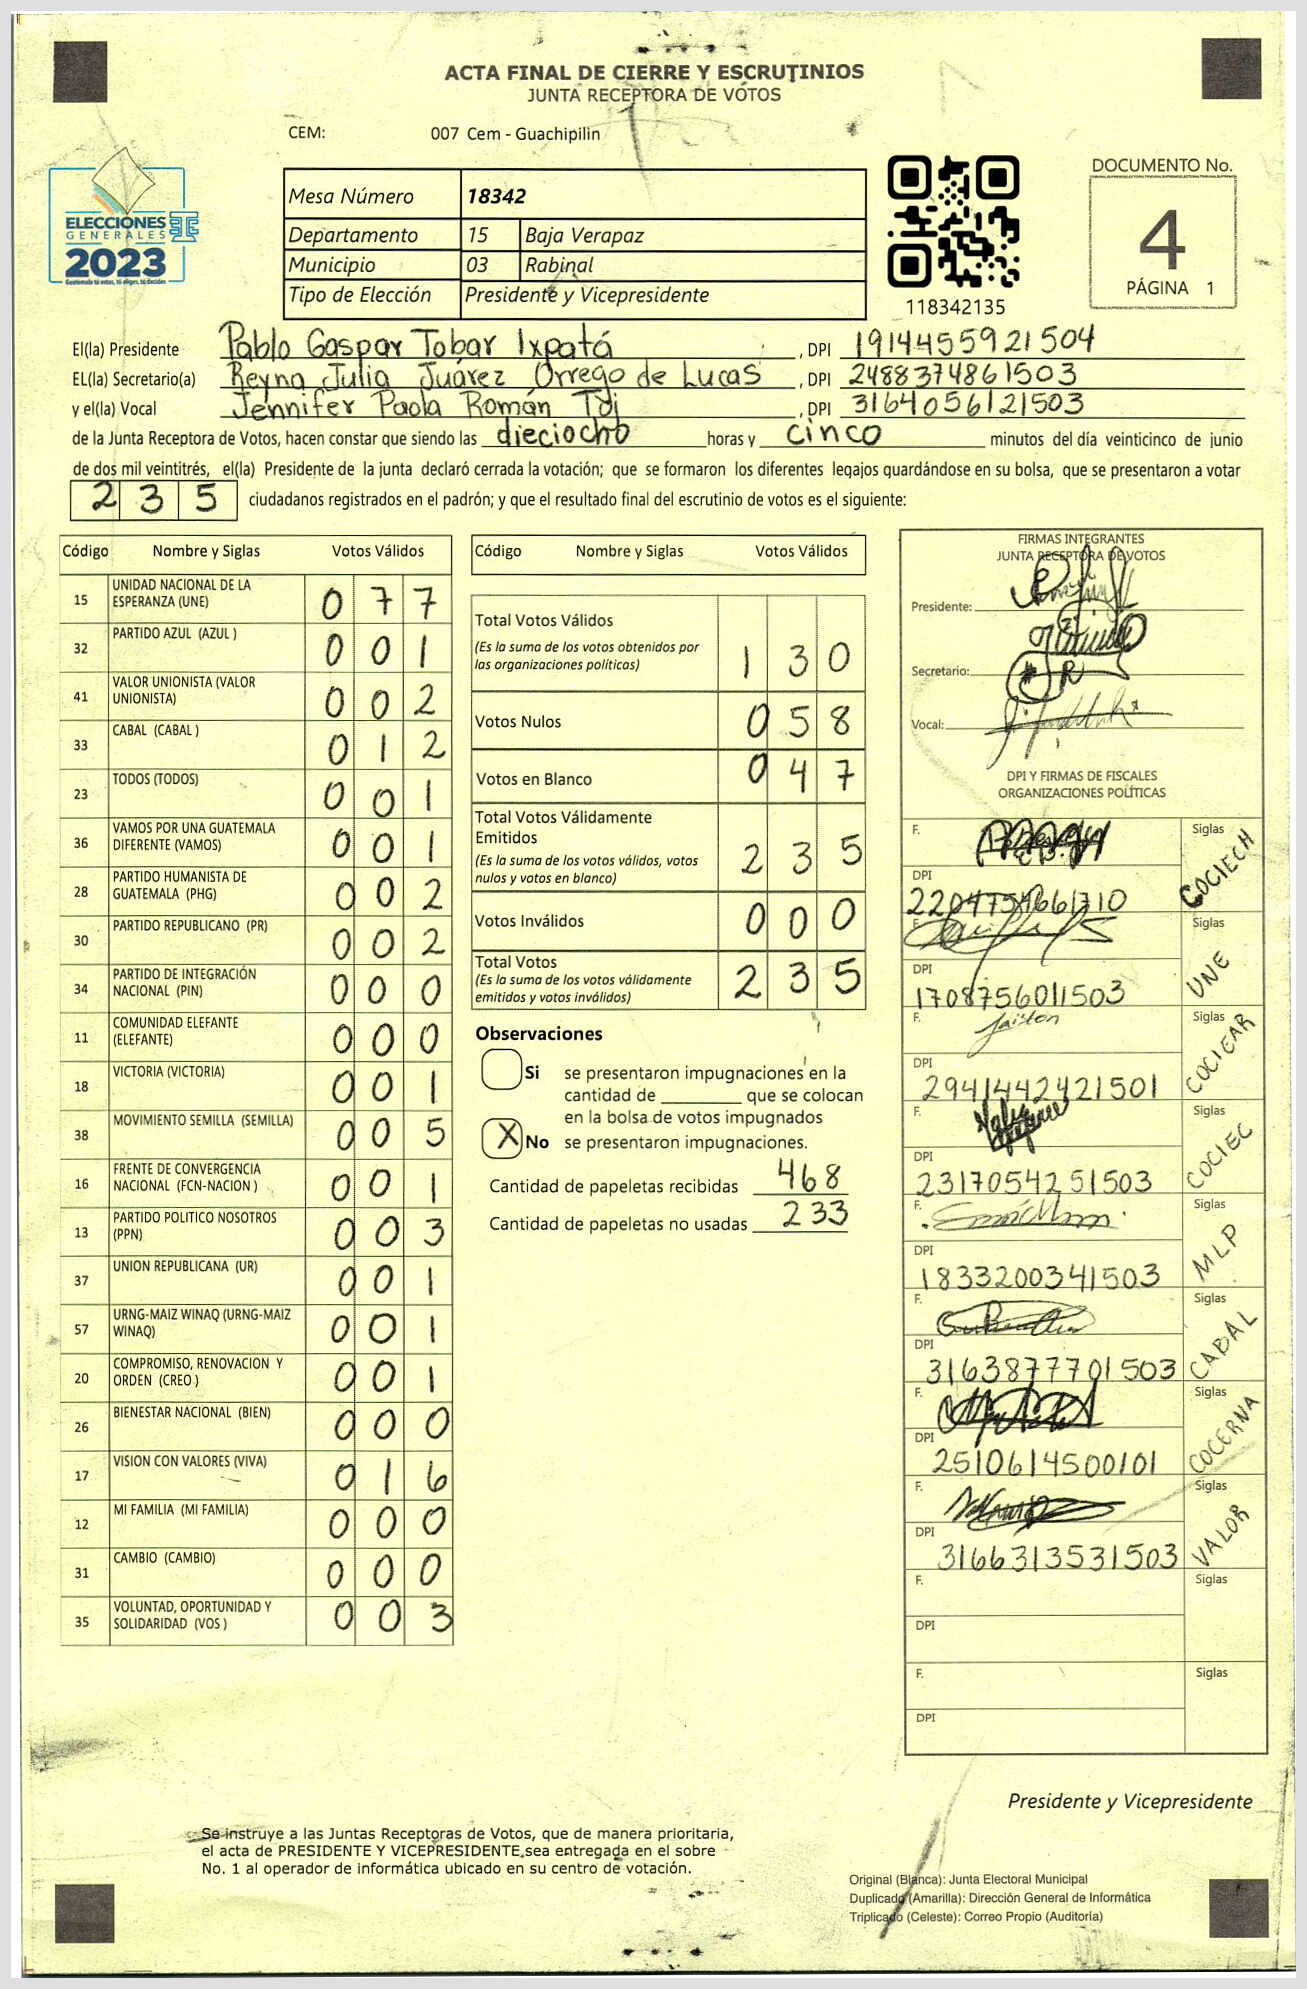 ACTA FINAL DE CIERRE Y ESCRUTINIOS
JUNTA RECEPTORA DE VOTOS
CEM: 007 Cem - Guachipilin
ELECCIONES
GENERALES
2023
Guatemala tú votas, tú eliges, tú decides
Mesa Número 18342
Departamento 15 Baja Verapaz
Municipio 03 Rabinal
Tipo de Elección Presidente y Vicepresidente
118342135
DOCUMENTO No.
4
PÁGINA 1
El(la) Presidente Pablo Gaspar Tobar Ixpatá , DPI 1914455921504
EL(la) Secretario(a) Reyna Julia Juárez Orrego de Lucas , DPI 2488374861503
y el(la) Vocal Jennifer Paola Román , DPI 3164056121503
de la Junta Receptora de Votos, hacen constar que siendo las dieciocho horas y cinco minutos del día veinticinco de junio
de dos mil veintitrés, el(la) Presidente de la junta declaró cerrada la votación; que se formaron los diferentes legajos guardándose en su bolsa, que se presentaron a votar
235 ciudadanos registrados en el padrón; y que el resultado final del escrutinio de votos es el siguiente:
Código Nombre y Siglas Votos Válidos
15 UNIDAD NACIONAL DE LA ESPERANZA (UNE) 077
32 PARTIDO AZUL (AZUL ) 001
41 VALOR UNIONISTA (VALOR UNIONISTA) 002
33 CABAL (CABAL ) 012
23 TODOS (TODOS) 001
36 VAMOS POR UNA GUATEMALA DIFERENTE (VAMOS) 001
28 PARTIDO HUMANISTA DE GUATEMALA (PHG) 002
30 PARTIDO REPUBLICANO (PR) 002
34 PARTIDO DE INTEGRACIÓN NACIONAL (PIN) 000
11 COMUNIDAD ELEFANTE (ELEFANTE) 000
18 VICTORIA (VICTORIA) 001
38 MOVIMIENTO SEMILLA (SEMILLA) 005
16 FRENTE DE CONVERGENCIA NACIONAL (FCN-NACION ) 001
13 PARTIDO POLITICO NOSOTROS (PPN) 003
37 UNION REPUBLICANA (UR) 001
57 URNG-MAIZ WINAQ (URNG-MAIZ WINAQ) 001
20 COMPROMISO, RENOVACION Y ORDEN (CREO ) 001
26 BIENESTAR NACIONAL (BIEN) 000
17 VISION CON VALORES (VIVA) 016
12 MI FAMILIA (MI FAMILIA) 000
31 CAMBIO (CAMBIO) 000
35 VOLUNTAD, OPORTUNIDAD Y SOLIDARIDAD (VOS ) 003
Código Nombre y Siglas Votos Válidos
Total Votos Válidos 130
(Es la suma de los votos obtenidos por
las organizaciones políticas)
Votos Nulos 058
Votos en Blanco 047
Total Votos Válidamente
Emitidos 235
(Es la suma de los votos válidos, votos
nulos y votos en blanco)
Votos Inválidos 000
Total Votos 235
(Es la suma de los votos válidamente
emitidos y votos inválidos)
Observaciones
Si se presentaron impugnaciones en la
cantidad de ________ que se colocan
en la bolsa de votos impugnados
X No se presentaron impugnaciones.
Cantidad de papeletas recibidas 468
Cantidad de papeletas no usadas 233
FIRMAS INTEGRANTES
JUNTA RECEPTORA DE VOTOS
Presidente:
Secretario:
Vocal:
DPI Y FIRMAS DE FISCALES
ORGANIZACIONES POLÍTICAS
F. Siglas COCIECH
DPI
F. Siglas UNE
DPI 1708756011503
F. Siglas COCIEAR
DPI 2941442421501
F. Siglas COCIEC
DPI 2317054251503
F. Siglas MLP
DPI 1833200341503
F. Siglas CABAL
DPI 3163877701503
F. Siglas COCERNA
DPI 2510614500101
F. Siglas VALOR
DPI 3166313531503
F. Siglas
DPI
F. Siglas
DPI
Presidente y Vicepresidente
Se instruye a las Juntas Receptoras de Votos, que de manera prioritaria,
el acta de PRESIDENTE Y VICEPRESIDENTE,sea entregada en el sobre
No. 1 al operador de informática ubicado en su centro de votación.
Original (Blanca): Junta Electoral Municipal
Duplicado (Amarilla): Dirección General de Informática
Triplicado (Celeste): Correo Propio (Auditoría)